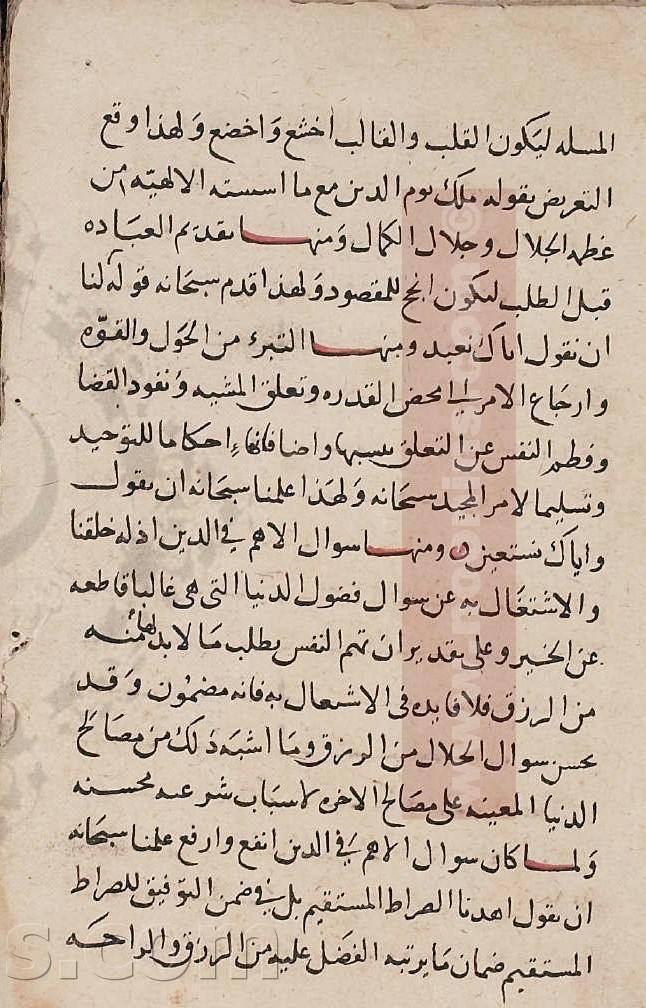 المسله ليكون القلب والقالب اخشع واخضع ولهذا وقع
التعريض بقوله ملك يوم الدين مع ما اسسته الالهيه من
عظمه الجلال وجلال الكمال ومنها تقديم العباده
قبل الطلب ليكون انجح للمقصود ولهذا قدم سبحانه قوله لنا
ان نقول اياك نعبد ومنها التبرء من الحول والقوه
وارجاع الامر الى محض القدره وتعلق المشيه ونفوذ القضا
وفطم النفس عن التعلق بسببها واضافاتها احكاما للتوحيد
وتسليما لامر المجيد سبحانه ولهذا علمنا سبحانه ان نقول
واياك نستعين ومنها سوال الاهم في الدين اذ له خلقنا
والاشتغال به عن سوال فضول الدنيا التي هي غالبا قاطعه
عن الخير وعلى تقدير ان تهم النفس بطلب ما لا بد لها منه
من الرزق فلا فايده في الاشتغال به فانه مضمون وقد
يحسن سوال الحلال من الرزق وما اشبه ذلك من مصالح
الدنيا المعينه على مصالح الاخره لاسباب شرعيه محسنه
ولما كان سوال الاهم في الدين انفع وارفع علمنا سبحانه
ان نقول اهدنا الصراط المستقيم بل في ضمن التوفيق للصراط
المستقيم ضمان ما يرتبه الفضل عليه من الرزق والراحه
s.com